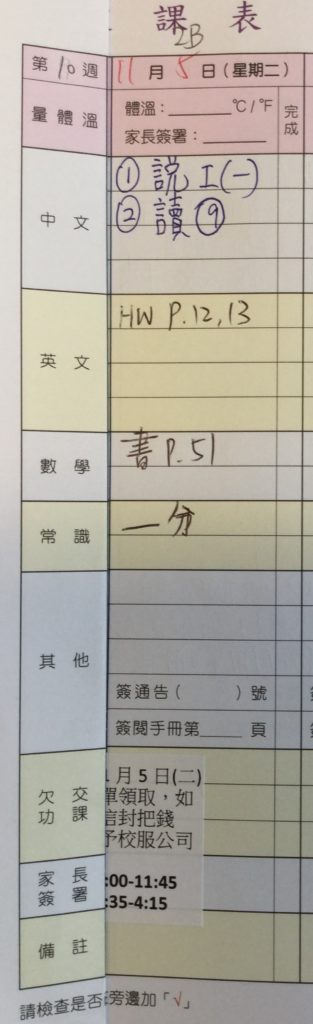 課 表
2B
第10週 11月5日(星期二)
量體溫 體溫:______°C/°F 完成
家長簽署:______
中文 ① 説工(一)
② 讀⑨
英文 HW P.12,13
數學 書 P.51
常識 一分
其他
簽通告( )號
簽閱手冊第____頁
欠交功課
月5日(二)
單領取,如
信封把錢
予校服公司
家長簽署
:00-11:45
:35-4:15
備註
請檢查是否 旁邊加「√」